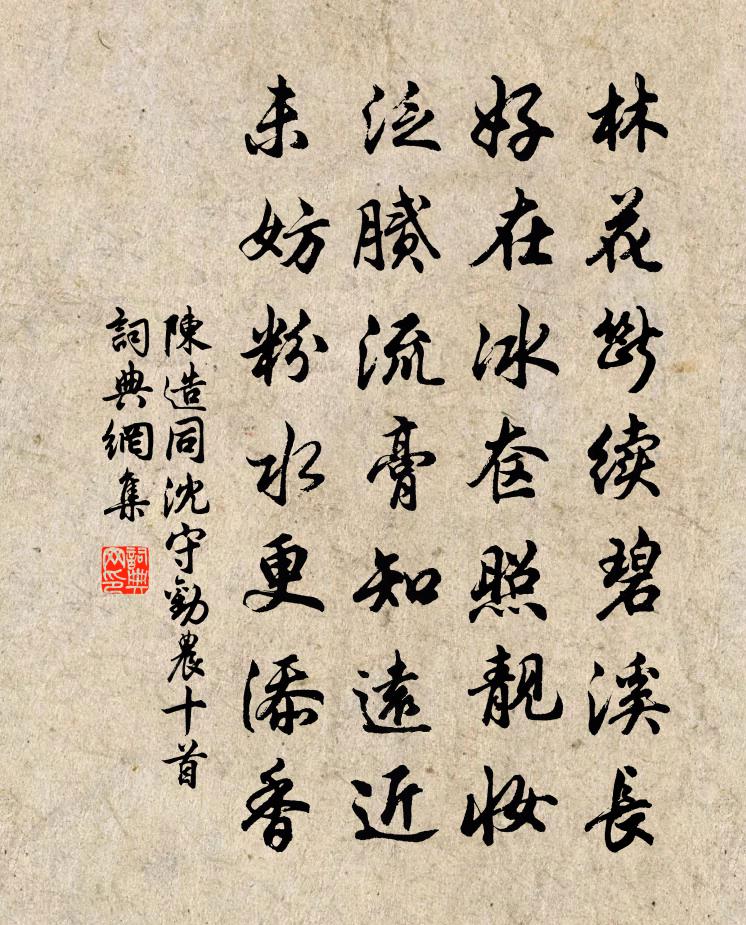 林花断续碧溪長
好在冰奁照靓妆
泛膩流膏知遠近
未妨粉水更添香
陳造同沈守勸農十首
詞典網集
詞典网印